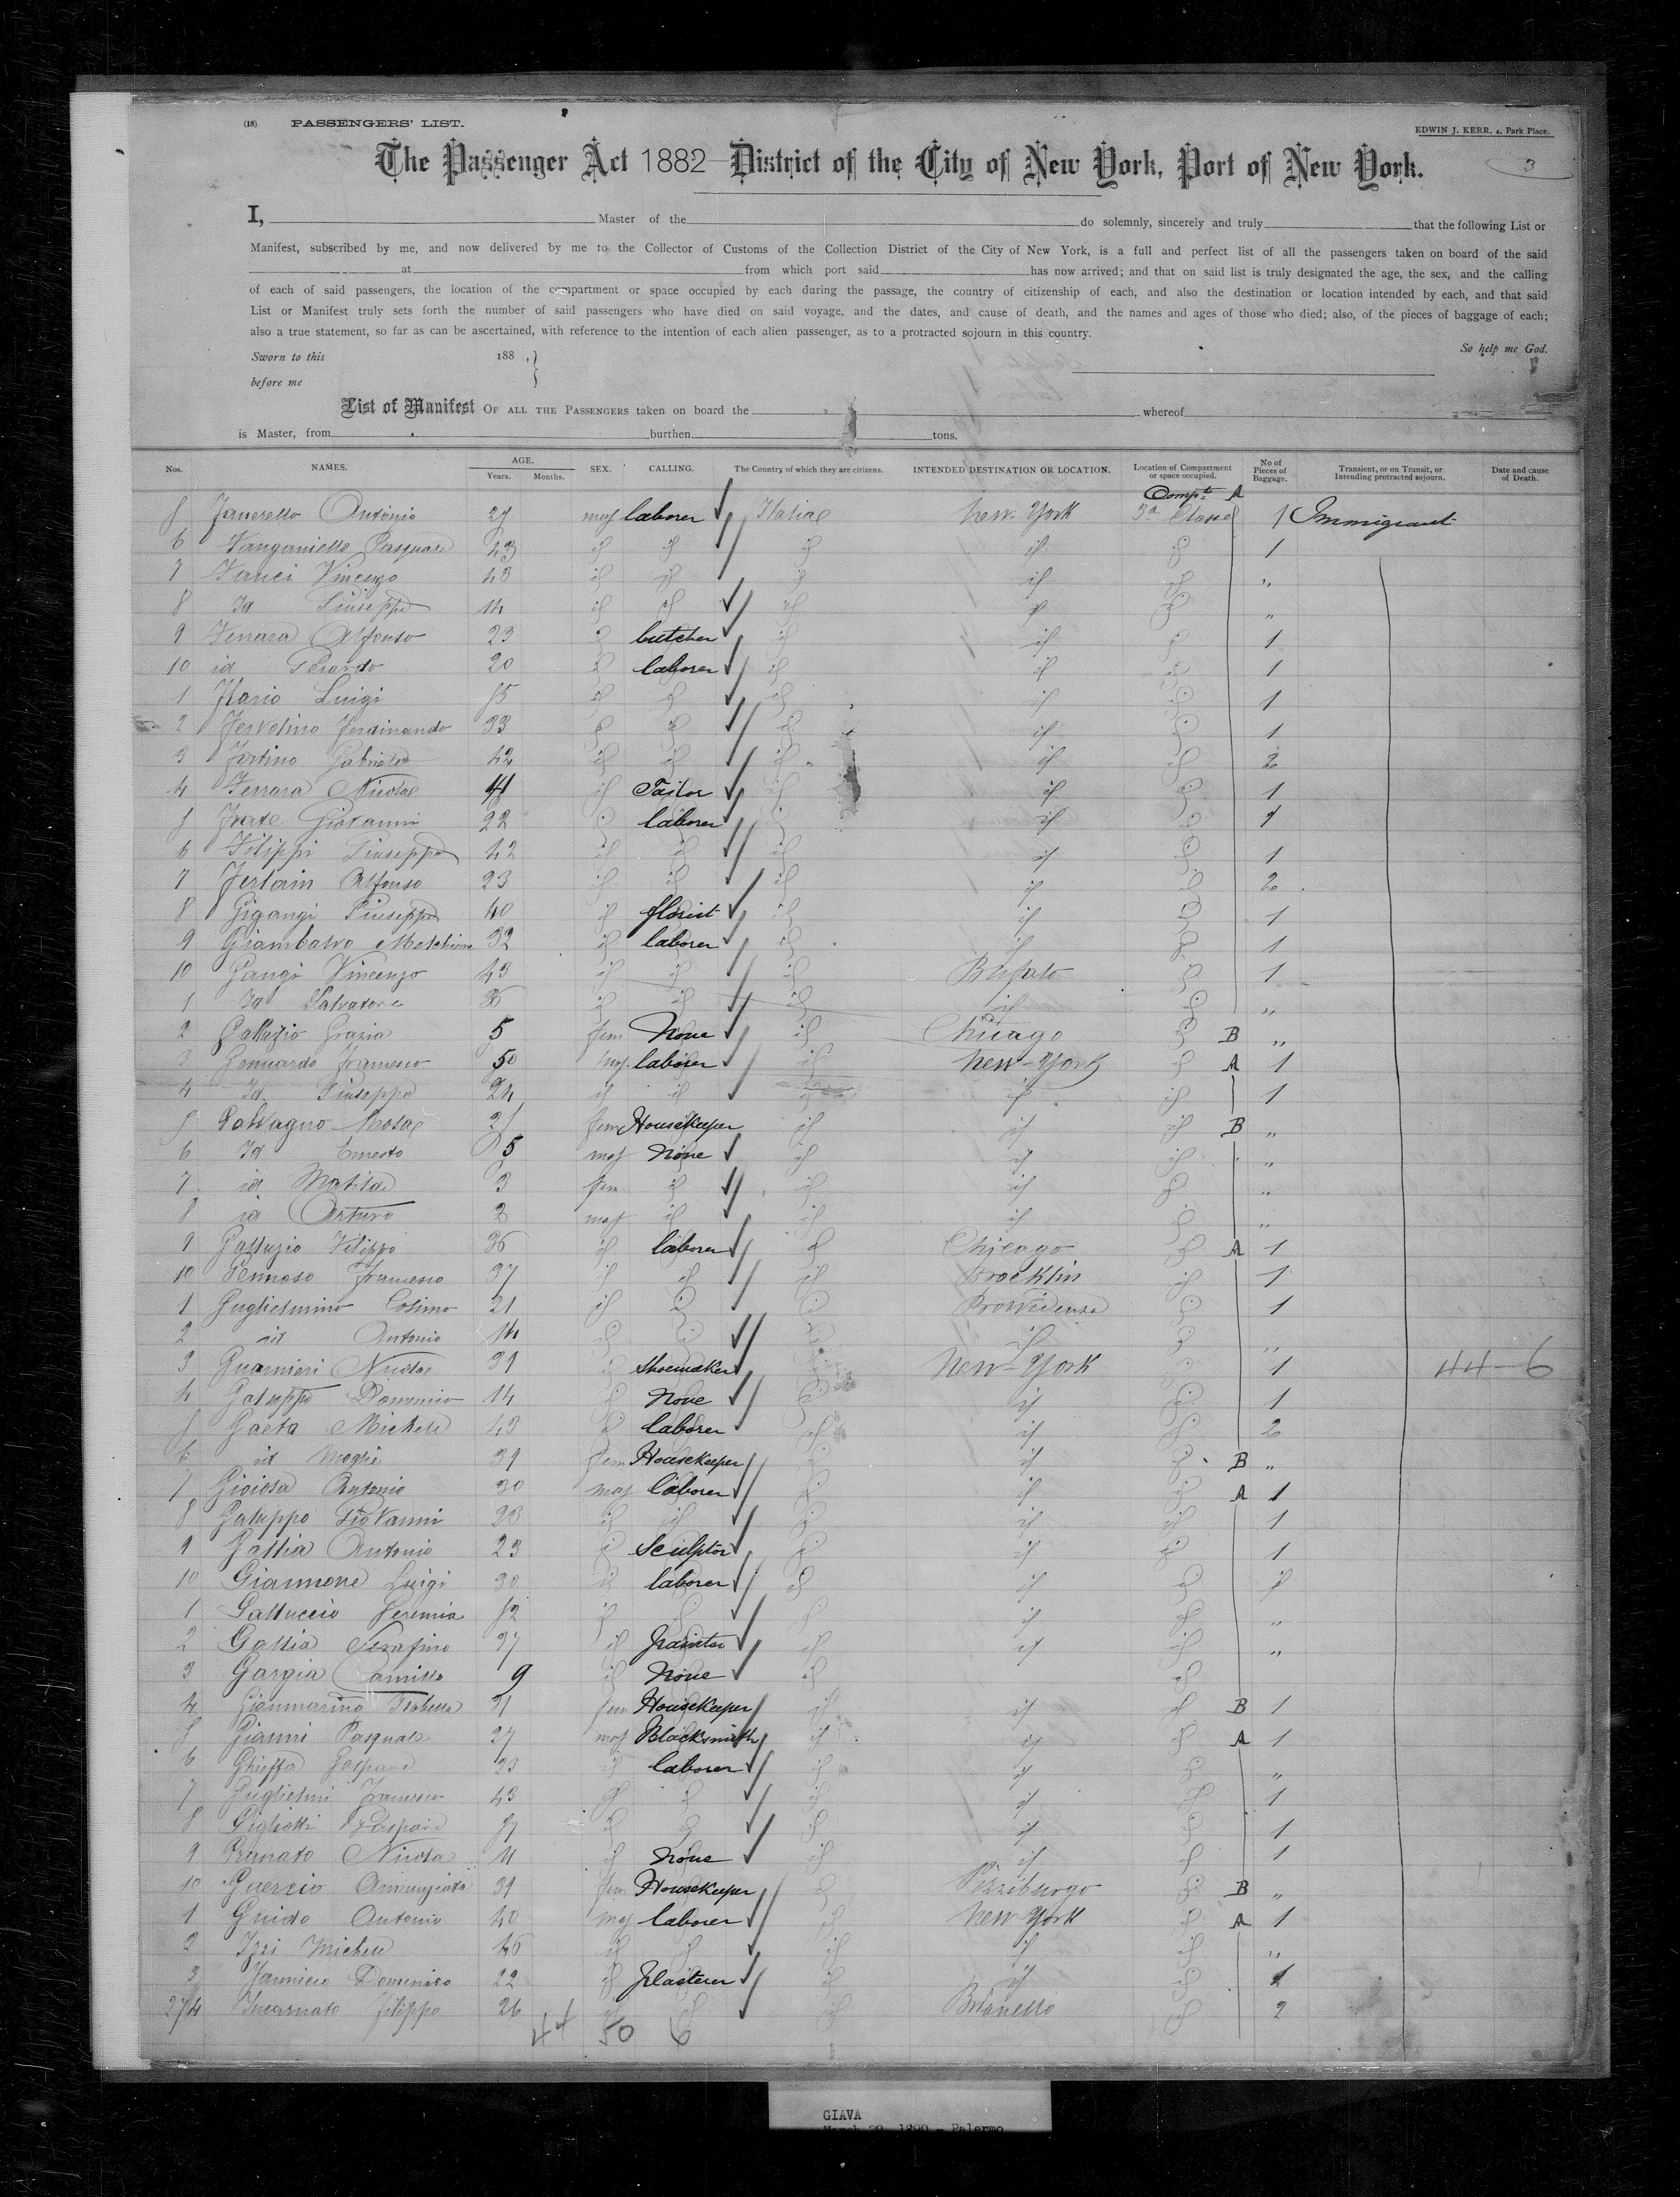 (18) PASSENGERS' LIST.
EDWIN J. KERR, 4, Park Place.
The Passenger Act 1882 District of the City of New York, Port of New York.
3
I, Master of the do solemnly, sincerely and truly that the following List or
Manifest, subscribed by me, and now delivered by me to the Collector of Customs of the Collection District of the City of New York, is a full and perfect list of all the passengers taken on board of the said
at from which port said has now arrived; and that on said list is truly designated the age, the sex, and the calling
of each of said passengers, the location of the compartment or space occupied by each during the passage, the country of citizenship of each, and also the destination or location intended by each, and that said
List or Manifest truly sets forth the number of said passengers who have died on said voyage, and the dates, and cause of death, and the names and ages of those who died; also, of the pieces of baggage of each;
also a true statement, so far as can be ascertained, with reference to the intention of each alien passenger, as to a protracted sojourn in this country.
Sworn to this 188 , So help me God.
before me
List of Manifest OF ALL THE PASSENGERS taken on board the whereof
is Master, from burthen tons.
Nos. NAMES. AGE. Years. Months. SEX. CALLING. The Country of which they are citizens. INTENDED DESTINATION OR LOCATION. Location of Compartment or space occupied. No of Pieces of Baggage. Transient, or on Transit, or Intending protracted sojourn. Date and cause of Death.
Compt A
Antonio 27 mas laborer Italia New-York 3a Classe 1 Immigrant
6 Pasquale 43 id id id id id 1
7 Vincenzo 43 id id id id id "
8 Id Giuseppe 14 id id id id id "
9 Ferrara Alfonso 23 id butcher id id id 1
10 id Gerardo 20 id laborer id id id 1
1 Ilario Luigi id id id id id 1
2 Ferdinando 33 id id id id id 1
3 Fortino Gabriele 42 id id id id id 2
4 Ferrara Nicola 41 id Tailor id id id 1
Frate Giovanni 22 id laborer id id id 1
6 Filippi Giuseppe 42 id id id id id 1
7 Alfonso 23 id id id id id 2
8 Gigangi Giuseppe 40 id florist id id id 1
9 Giambalvo Melchiore 32 id laborer id id id 1
10 Gangi Vincenzo 43 id id id Bufalo id 1
1 Id Salvatore id id id id id "
2 Galluzio Grazia 5 fem None id Chicago id B "
3 Gennardo Francesco 50 mas laborer id New-York id A 1
4 Id Giuseppe 24 id id id id id 1
Rosa fem Housekeeper id id id B "
6 Id Ernesto 5 mas None id id id "
7 id Matilde 3 fem id id id id "
8 id Arturo 2 mas id id id id "
9 Galluzio Filippo id laborer id Chicago id A 1
10 Francesco 37 id id id Brocklin id 1
1 Guglielmino Cosimo 21 id id id Providenza id 1
2 id Antonio 14 id id id id id "
3 Guarnieri Nicola 39 id shoemaker id New-York id 1 44-6
4 Galuppo Domenico 14 id None id id id 1
Gaeta Michele 43 id laborer id id id 2
6 id Moglie 39 fem Housekeeper id id id B "
7 Gioiosa Antonio 30 mas laborer id id id A 1
8 Galuppo Giovanni 33 id id id id id 1
9 Gallia Antonio 23 id Sculptor id id id 1
10 Giannone Luigi 30 id laborer id id id 1
1 Galluccio Geremia id id id id id "
2 Gallia Serafino 37 id painter id id id "
3 Gargia Camillo 9 id None id id
4 fem Housekeeper id id id B 1
Gianni Pasquale 27 mas Blacksmith id id id A 1
6 Gaspare 23 id laborer id id id "
7 Guglielmi Francesco 43 id id id id id 1
8 Gigliotti Gaspare id id id id id 1
9 Granato Nicola 11 id None id id id 1
10 Guercio Annunziata 39 fem Housekeeper id Pizziburgo id B "
1 Guido Antonio 40 mas laborer id New-York id A 1
2 Izzi Michele id id id id id "
3 Domenico 22 id plasterer id id id 1
274 Incarnato Filippo 26 id id id id 2
44 50 6
GIAVA